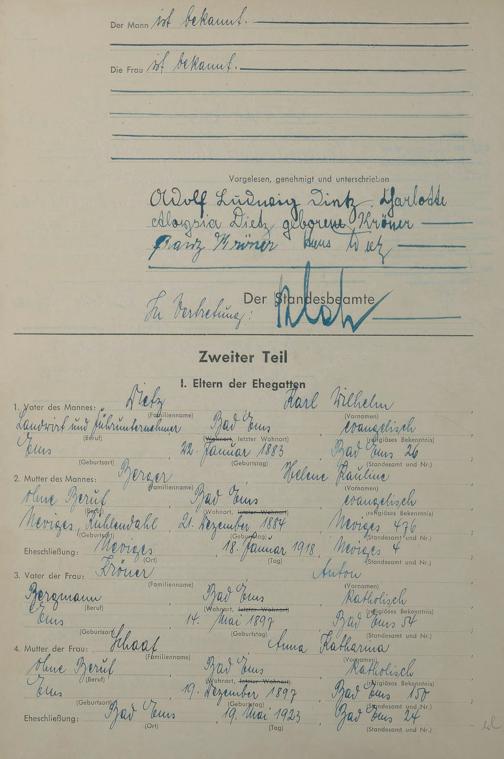 Der Mann ist bekannt.
Die Frau ist bekannt.
Vorgelesen, genehmigt und unterschrieben
Adolf Ludwig Dietz, Charlotte
Aloysia Dietz geborene Kröner
Franz Kröner Hans Dietz
Der Standesbeamte
In Vertretung:
Zweiter Teil
I. Eltern der Ehegatten
1. Vater des Mannes: Dietz Karl Wilhelm
(Familienname) (Vornamen)
Landwirt und Fuhrunternehmer, Bad Ems, evangelisch
(Beruf) (Wohnort, letzter Wohnort) (religiöses Bekenntnis)
Ems, 22. Januar 1883, Bad Ems 26
(Geburtsort) (Geburtstag) (Standesamt und Nr.)
2. Mutter des Mannes: Berger Helene Pauline
(Familienname) (Vornamen)
ohne Beruf, Bad Ems, evangelisch
(Beruf) (Wohnort, letzter Wohnort) (religiöses Bekenntnis)
Neviges, Kuhlendahl, 21. Dezember 1884, Neviges 476
(Geburtsort) (Geburtstag) (Standesamt und Nr.)
Eheschließung: Neviges, 18. Januar 1918, Neviges 4
(Ort) (Tag) (Standesamt und Nr.)
3. Vater der Frau: Kröner Anton
(Familienname) (Vornamen)
Bergmann, Bad Ems, Katholisch
(Beruf) (Wohnort, letzter Wohnort) (religiöses Bekenntnis)
Ems, 14. Mai 1897, Bad Ems 54
(Geburtsort) (Geburtstag) (Standesamt und Nr.)
4. Mutter der Frau: Schaaf Anna Katharina
(Familienname) (Vornamen)
ohne Beruf, Bad Ems, Katholisch
(Beruf) (Wohnort, letzter Wohnort) (religiöses Bekenntnis)
Ems, 19. Dezember 1897, Bad Ems 150
(Geburtsort) (Geburtstag) (Standesamt und Nr.)
Eheschließung: Bad Ems, 19. Mai 1923, Bad Ems 24
(Ort) (Tag) (Standesamt und Nr.)